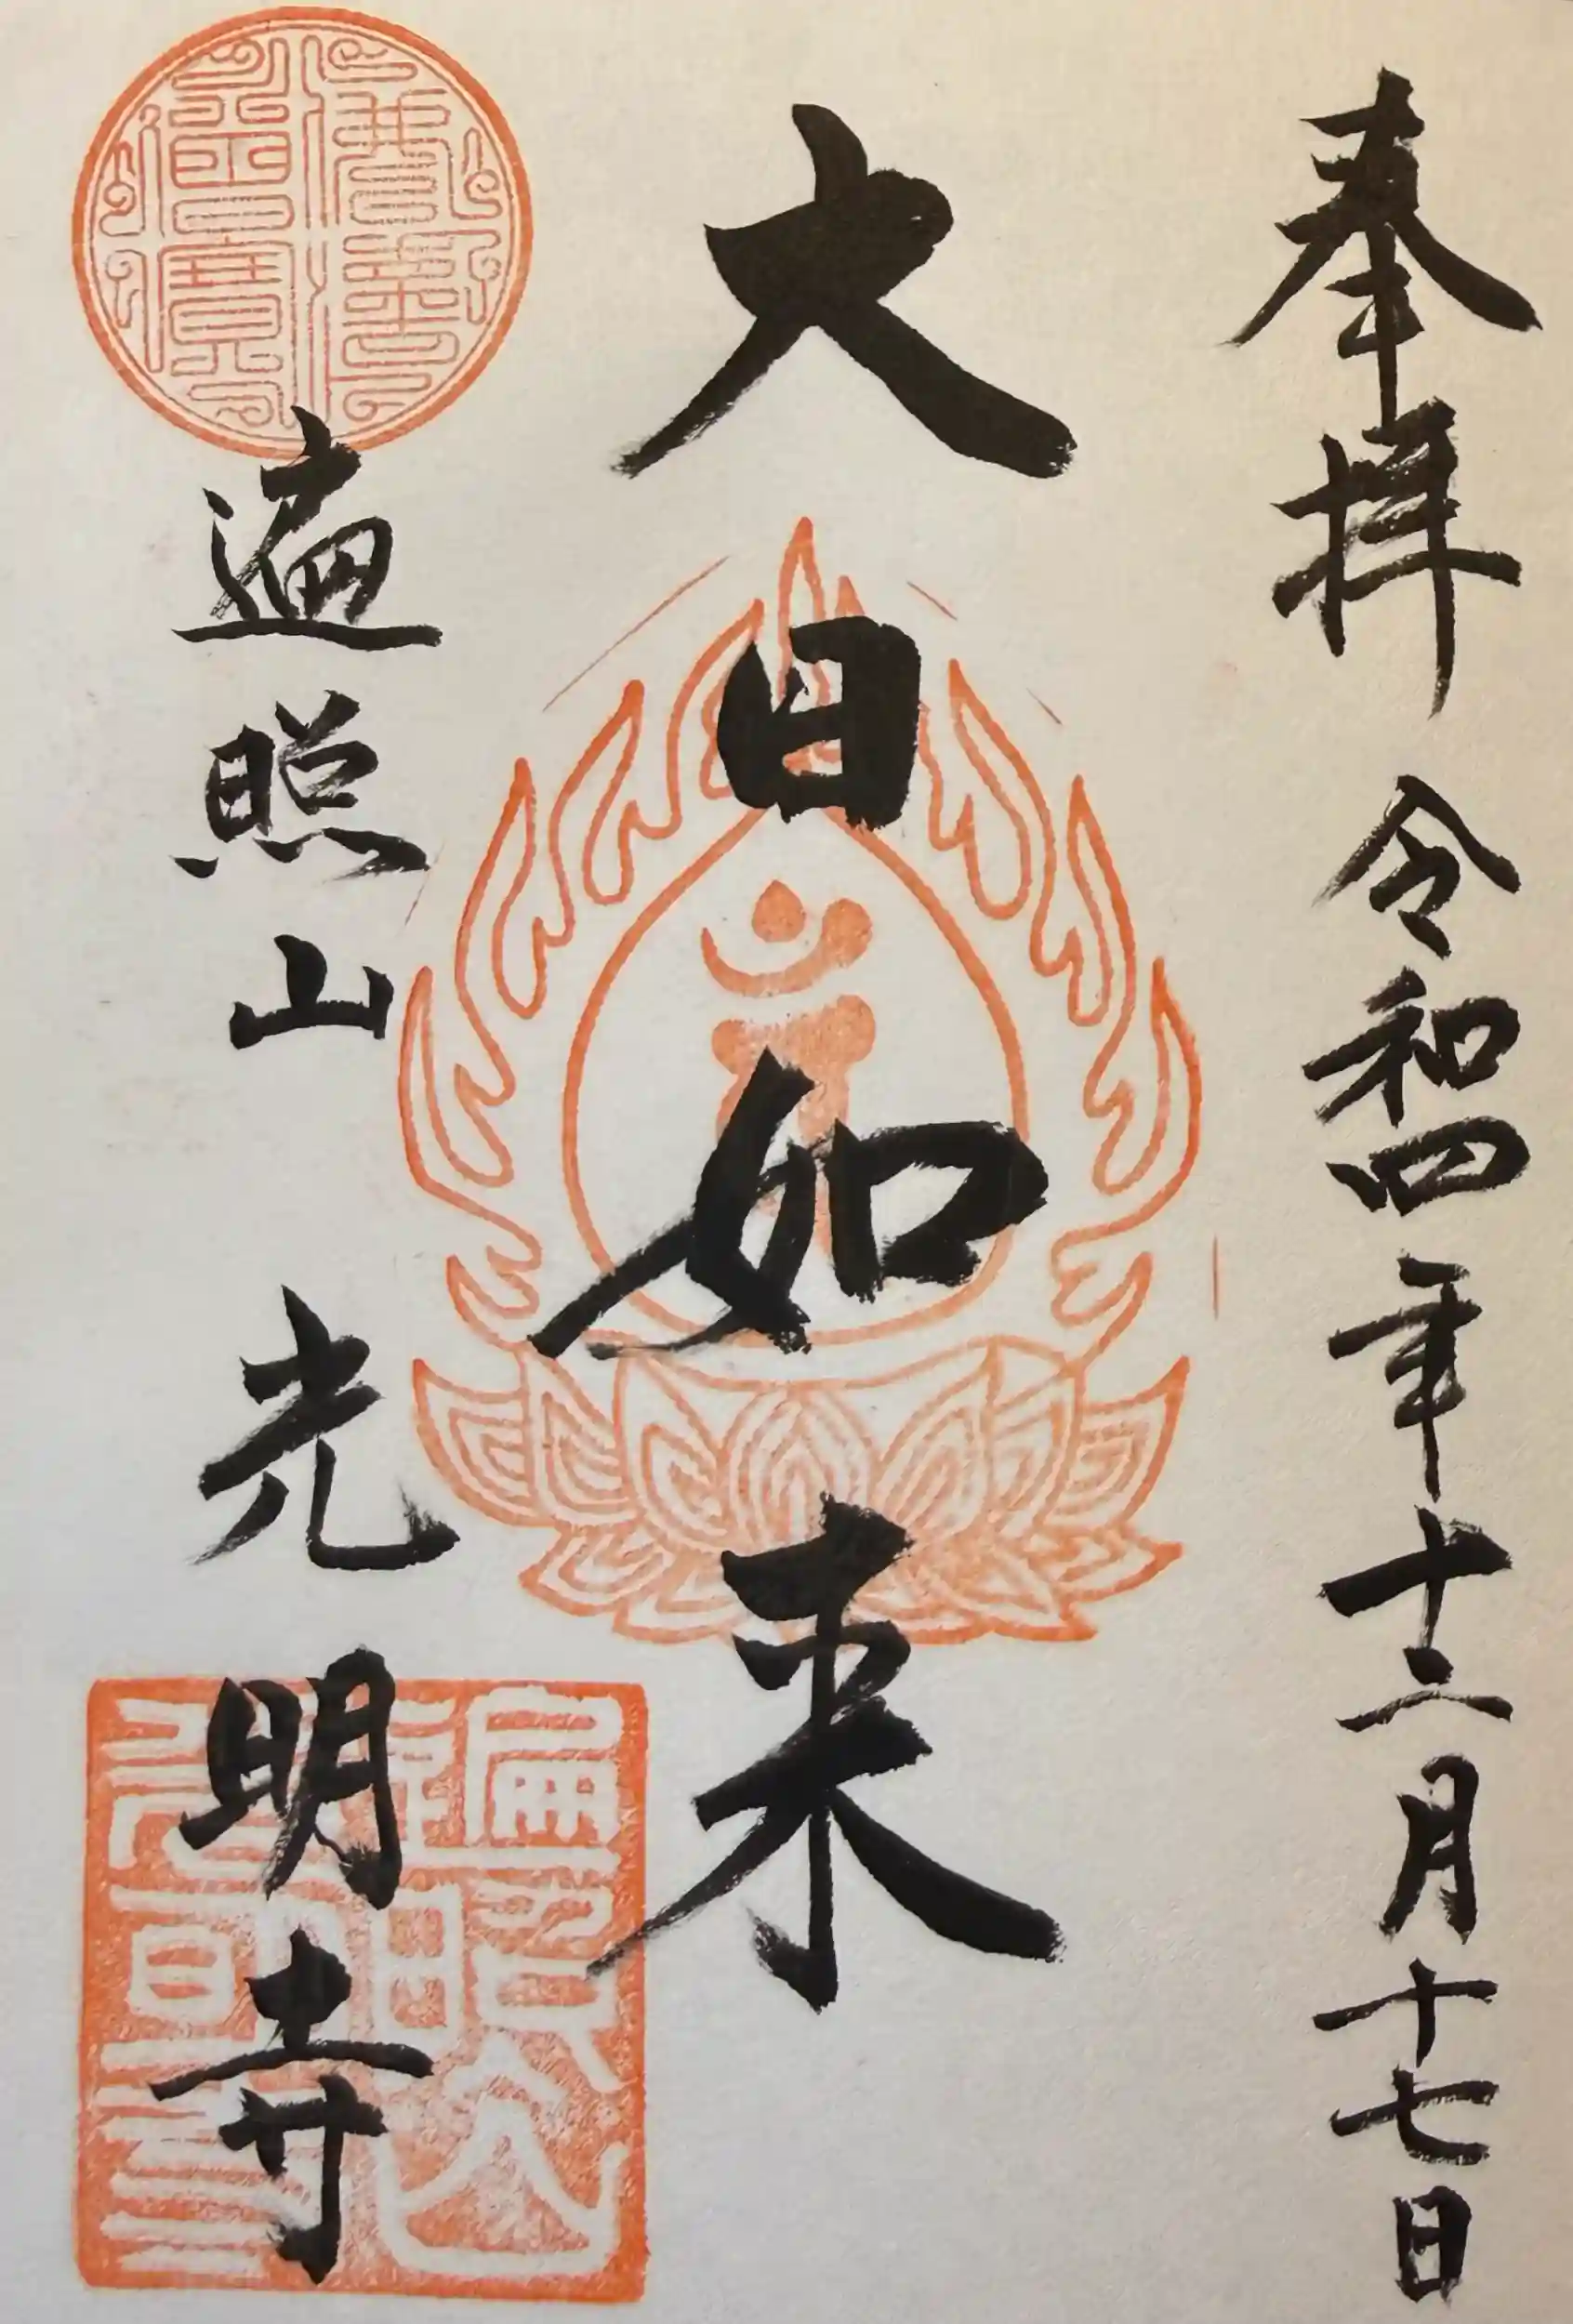 奉拝 令和四年十二月十七日
大日如来
遍照山 光明寺
佛法僧寳